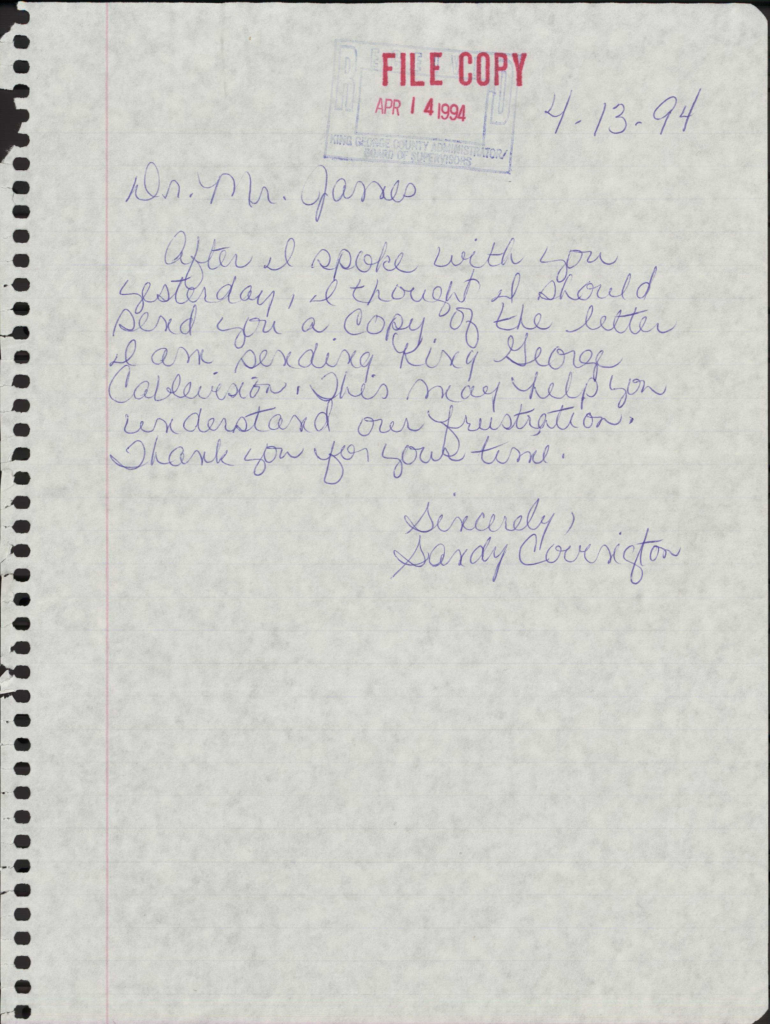 FILE COPY
APR 14 1994
KING GEORGE COUNTY ADMINISTRATOR/
BOARD OF SUPERVISORS
4-13-94
Dr. Mr. James
After I spoke with you
yesterday, I thought I should
send you a copy of the letter
I am sending King George
Cablevision. This may help you
understand our frustration.
Thank you for your time.
Sincerely,
Sandy Covington